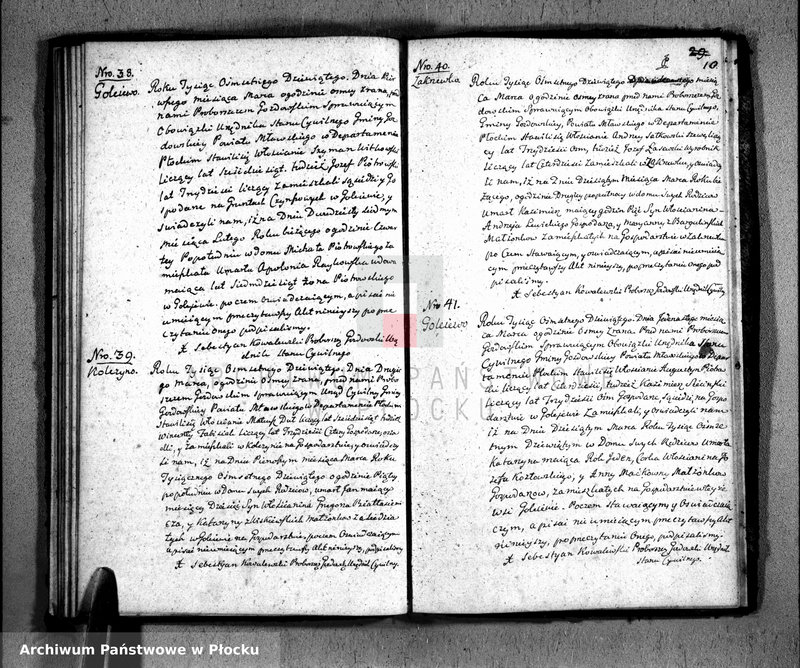 Nro. 38.
Golciewo.
Roku Tysiąc Ośmsetnego Dziewiątego. Dnia Pier
wszego miesiąca Marca ogodzinie osmey zrana, przed
nami Proboszczem Gozdowskim Sprawuiącym
Obowiązki Urzędnika Stanu Cywilnego Gminy Go
zdowskiey Powiatu Mławskiego w Departamencie
Płockim Stawili się Włościanie Szyman Witkowski
Liczący lat Sześćdziesiąt, tudzież Jozef Piotrowski
lat Trzydzieści liczący zamieszkali sąsiedzi y Go
spodarze na Gruntach Czynszowych w Golciewie; y
Oświadczyli nam, iż na Dniu Dwudziestym Siodmym
Miesiąca Lutego Roku bieżącego ogodzinie Czwar
tey Popołudniu w domu Michała Piotrowskiego za
mieszkała Umarła Apolonia Raykowska wdowa
maiąca lat Siedmdziesiąt żona Piotrowskiego
w Golciewie. poczem Oświadczaiącym, a pisać nie
umieiącym przeczytawszy Akt ninieyszy po prze
czytaniu onego podpisalismy.
X Sebestyan Kowalewski Proboszcz Gozdowski Urzę
dnik Stanu Cywilnego
Nro. 39.
Kolczyno.
Roku Tysiąc Ośmsetnego Dziewiątego, Dnia Drugie
go Marca, ogodzinie osmey zrana, przed nami Probo
szczem Gozdowskim Sprawuiącym Urząd Cywilny Gminy
Gozdowskiey Powiatu Mławskiego w Departamencie Płockim
Stawili się Włościanie Mateusz Dut liczący lat Sześćdziesiąt tudzież
Wincenty liczący lat Trzydzieści Cztery Gospodarze, są
siedzi, y zamieszkali w Kolczynie na Gospodarstwie; y Oświadczy
li nam, iż na Dniu Pierwszym miesiąca Marca Roku
Tysiącznego Ośmsetnego Dziewiątego ogodzinie Piątey
popołudniu w Domu swych Rodzicow, umarł Jan maiący
miesięcy Dziesięć Syn Włościanina Grzegorza
y Katarzyny z Małżonkow
w Golciewie na Gospodarstwie, poczem Oświadczaiącym
a pisać nieumieiącym przeczytawszy Akt ninieyszy, podpisalismy
X Sebestyan Kowalewski Proboszcz Gozdowski Urzędnik Cywilny.
29
10
Nro. 40.
Zakrzewka
Roku Tysiąc Ośmsetnego Dziewiątego miesią
ca Marca ogodzinie osmey zrana przed nami Proboszczem Go
zdowskim Sprawuiącym Obowiązki Urzędnika Stanu Cywilnego,
Gminy Gozdowskiey, Powiatu Mławskiego w Departamencie
Płockim Stawili się Włościanie Andrzey Sałkowski liczą
cy lat Trzydzieści Ośm, tudzież Jozef wyrobnik
Liczący lat Czterdzieści zamieszkali w Zakrzewku, y Oświadczy
li nam, iż na Dniu Dziesiątym Miesiąca Marca Roku bie
żącego, ogodzinie Drugiey popołnocy w domu swych Rodzicow
Umarł Kazimierz maiący godzin Pięć, Syn Włościanina
Andrzeja Gospodarza, y Maryanny z
Małżonkow Zamieszkałych na Gospodarstwie w Zakrzewku
po czem Stawaiącym, y Oświadczaiącym, a pisać nieumieią
cym przeczytawszy Akt ninieyszy, po przeczytaniu Onego pod
pisalismy.
X Sebestyan Kowalewski Proboszcz Gozdowski Urzędnik Cywilny
Nro 41.
Golciewo
Roku Tysiąc Ośmsetnego Dziewiątego. Dnia Jedenastego miesią
ca Marca ogodzinie Osmey zrana. Przed nami Proboszczem
Gozdowskim Sprawuiącym Obowiązki Urzędnika Stanu
Cywilnego Gminy Gozdowskiey Powiatu Mławskiego w Depar
tamencie Płockim Stawili się Włościanie Augustyn
liczący lat Czterdzieści, tudzież Kazimierz
liczący lat Trzydzieści Ośm Gospodarze, Sąsiedzi, na Gospo
darstwie w Golciewie Zamieszkali, y Oświadczyli nam
Iż na Dniu Dziesiątym Marca Roku Tysiąc Ośmse
tnym Dziewiątym w Domu swych Rodzicow Umarła
Katarzyna maiąca Rok Jeden, Corka Włościanina Jo
zefa Kozłowskiego, y Anny Małżonkow
Gospodarzow, zamieszkałych na Gospodarstwie w teyże
wsi Golciewie. Poczem Stawaiącym y Oświadczaią
cym, a pisać nie umieiącym przeczytawszy Akt
ninieyszy, po przeczytaniu Onego, podpisalismy.
X Sebestyan Kowalewski Proboszcz Gozdowski Urzędnik
Stanu Cywilnego.
Archiwum Państwowe w Płocku